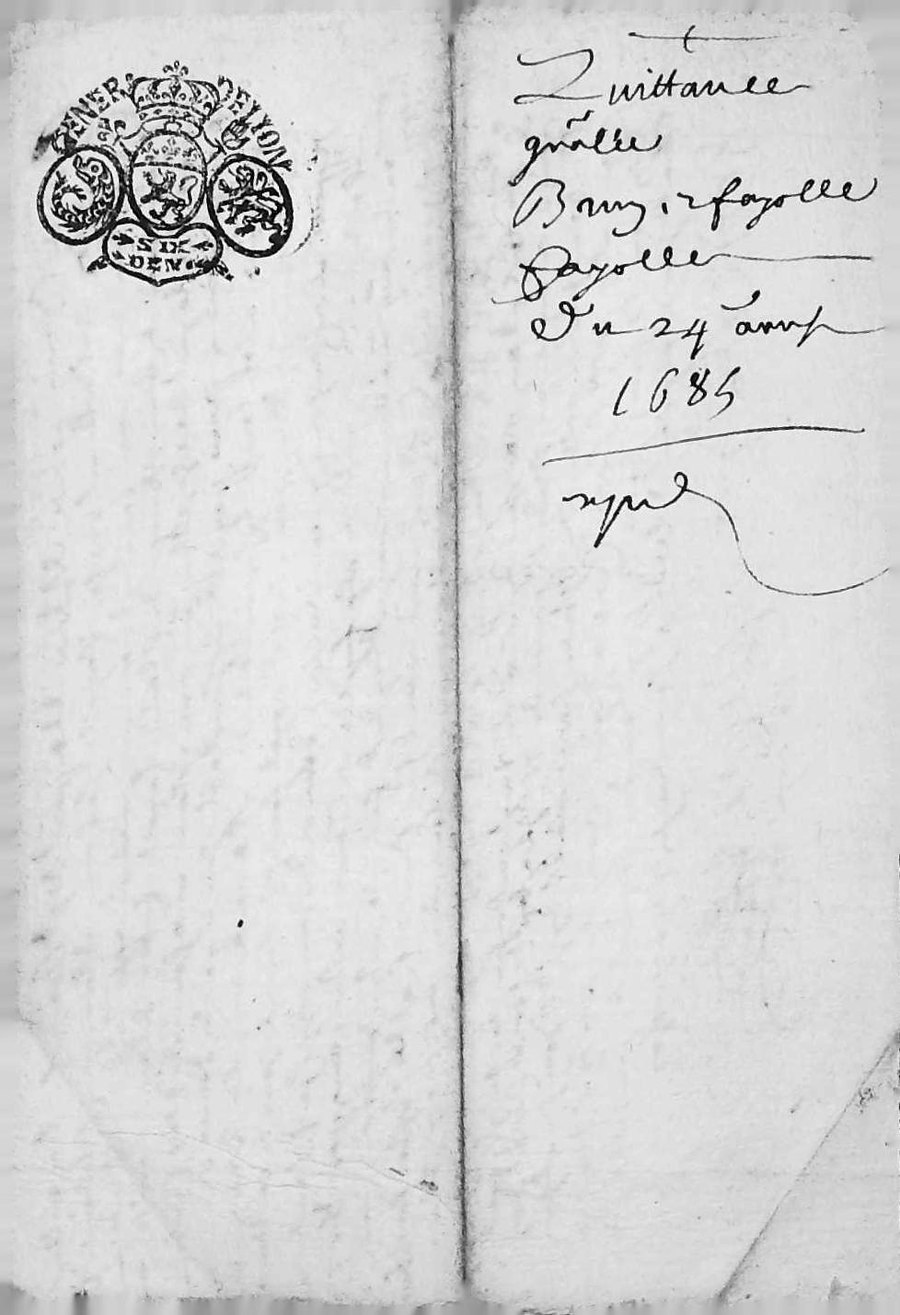 GENER. DE LYON
SIX
DEN.
Quittance
gnālle
Brun, & fayolle
Fayolle
Du 24 avril
1685
expd